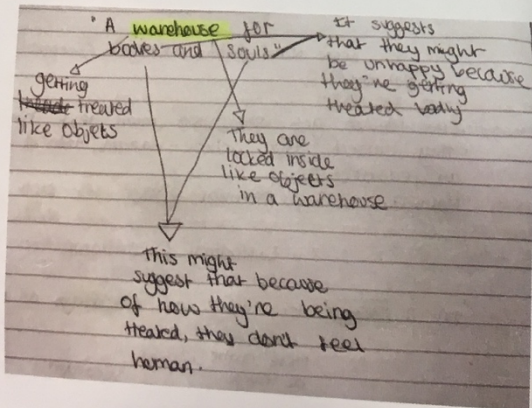 "A warehouse for
bodies and souls"
It suggests
that they might
be unhappy because
they're getting
treated badly
getting
treated
like objets
They are
locked inside
like objects
in a warehouse
This might
suggest that because
of how they're being
treated, they don't feel
human.